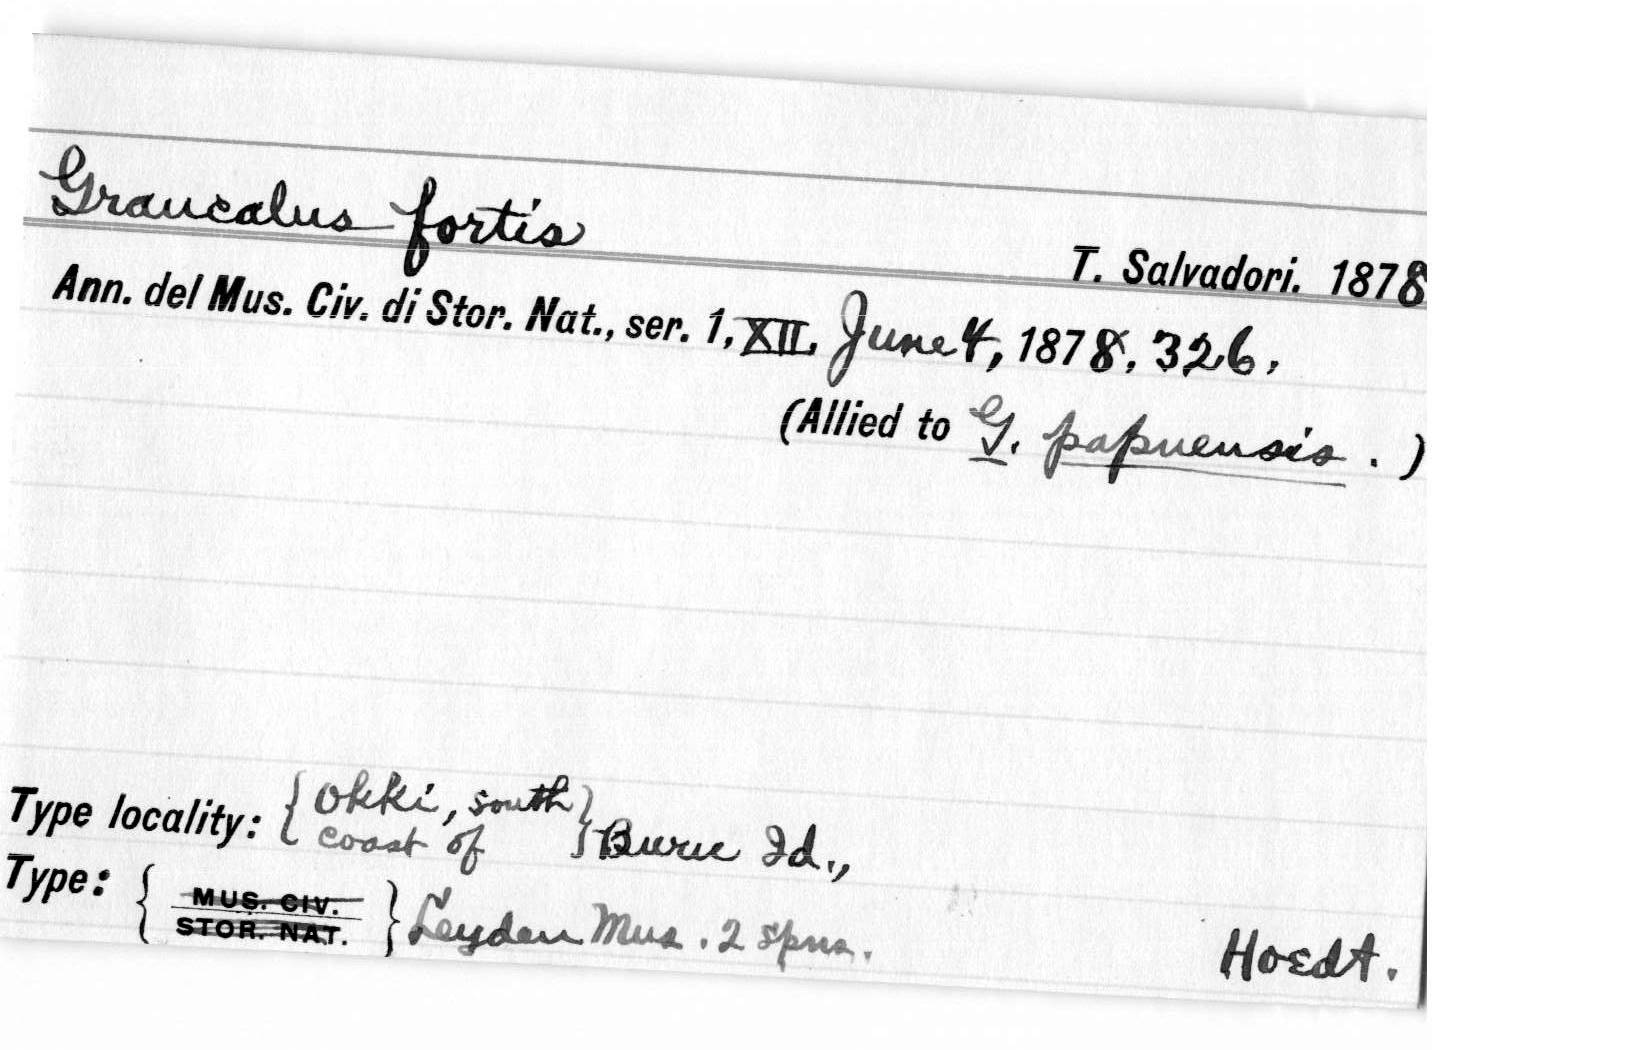 Graucalus fortis
T. Salvadori. 1878
Ann. del Mus. Civ. di Stor. Nat., ser. 1, XII, June 4, 1878, 326,
(Allied to G. papuensis . )
Type locality: { Okki, south
coast of } Buru Id.,
Type: { MUS. CIV.
STOR. NAT. } Leyden Mus. 2 spns.
Hoedt.